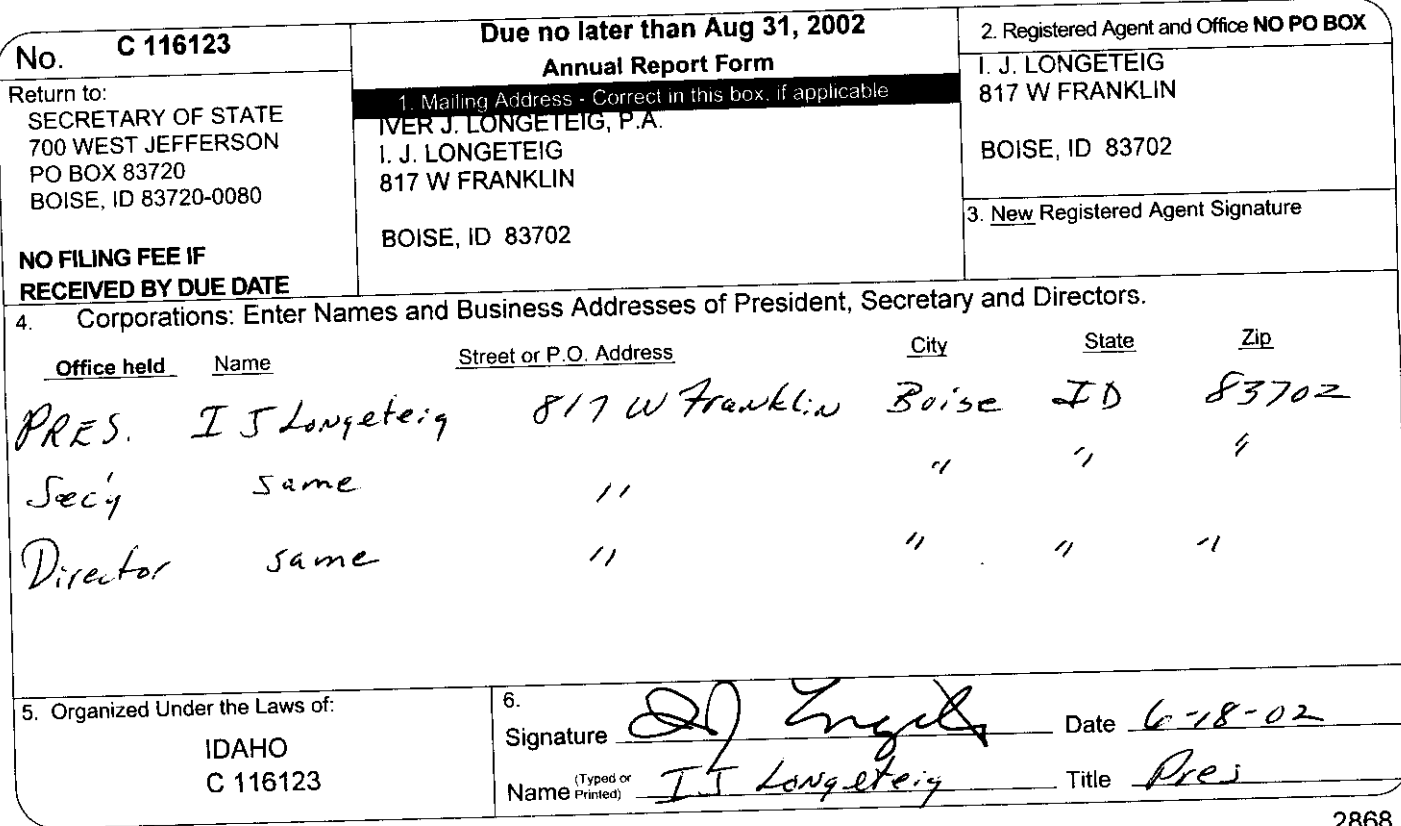 No. C 116123
Return to:
SECRETARY OF STATE
700 WEST JEFFERSON
PO BOX 83720
BOISE, ID 83720-0080
NO FILING FEE IF
RECEIVED BY DUE DATE
Due no later than Aug 31, 2002
Annual Report Form
1. Mailing Address - Correct in this box, if applicable
IVER J. LONGETEIG, P.A.
I. J. LONGETEIG
817 W FRANKLIN
BOISE, ID 83702
2. Registered Agent and Office NO PO BOX
I. J. LONGETEIG
817 W FRANKLIN
BOISE, ID 83702
3. New Registered Agent Signature
4. Corporations: Enter Names and Business Addresses of President, Secretary and Directors.
Office held Name Street or P.O. Address City State Zip
PRES. I J Longeteig 817 W Franklin Boise ID 83702
Sec'y same " " " "
Director same " " " "
5. Organized Under the Laws of:
IDAHO
C 116123
6.
Signature I J Longeteig Date 6-18-02
Name (Typed or Printed) I J Longeteig Title Pres
2868